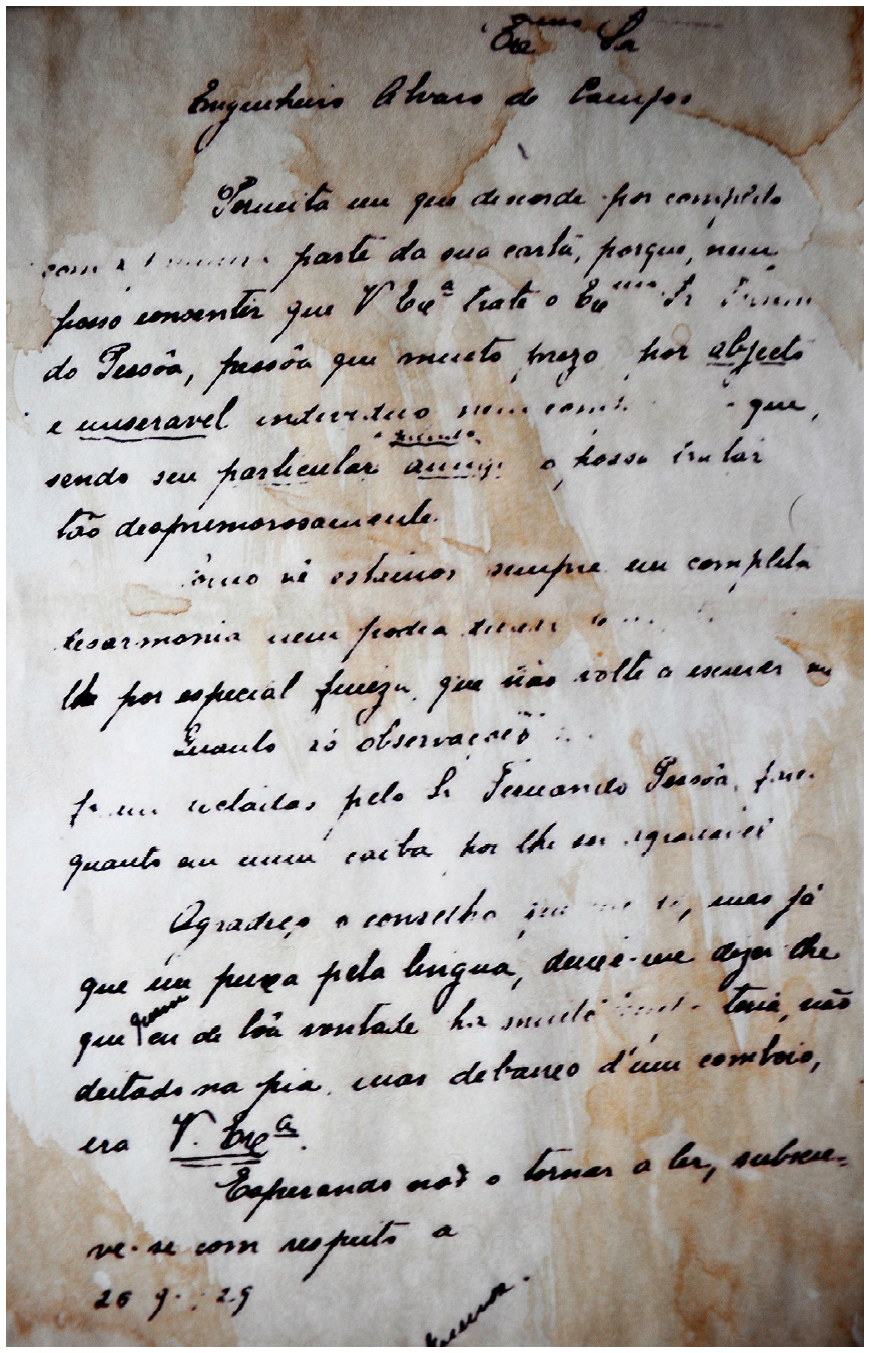 Exmo Sr
Engenheiro Alvaro de Campos
Permita-me que discorde por completo
com a primeira parte da sua carta, porque, nem
posso consentir que V Exª trate o Exmo Sr Fernan
do Pessôa, pessôa que muito prezo por abjecto
e miseravel individuo nem que,
sendo seu particular e querido amigo o possa tratar
tão desprimorosamente.
Como vê estamos sempre em completa
desarmonia nem podia deixar
lhe por especial fineza, que não volte a escrever
Quanto ás observações
pelo Sr Fernando Pessôa,
quanto em mim caiba por lhe ser agradavel
Agradeço o conselho mas já
que me puxa pela lingua, deixe-me dizer-lhe
que quem eu de bôa vontade ha muito teria, não
deitado na pia, mas debaixo d'um comboio,
era V. Exª.
Esperando não o tornar a ler, subscre-
ve-se com respeito a
26 9 29